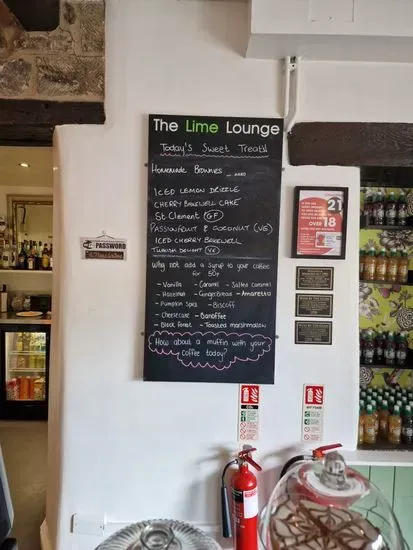 The Lime Lounge
Today's Sweet Treats
Homemade Brownies ... AND
ICED LEMON DRIZZLE
CHERRY BAKEWELL CAKE
St Clement (GF)
PASSIONFRUIT & COCONUT (VG)
ICED CHERRY BAKEWELL
TURKISH DELIGHT (VG)
Why not add a syrup to your coffee
for 50p
- Vanilla - Caramel - Salted caramel
- Hazelnut - Gingerbread - Amaretto
- Pumpkin Spice - Biscoff
- Cheesecake - Banoffee
- Black forest - Toasted marshmallow
How about a muffin with your
coffee today?
PASSWORD
21
OVER 18